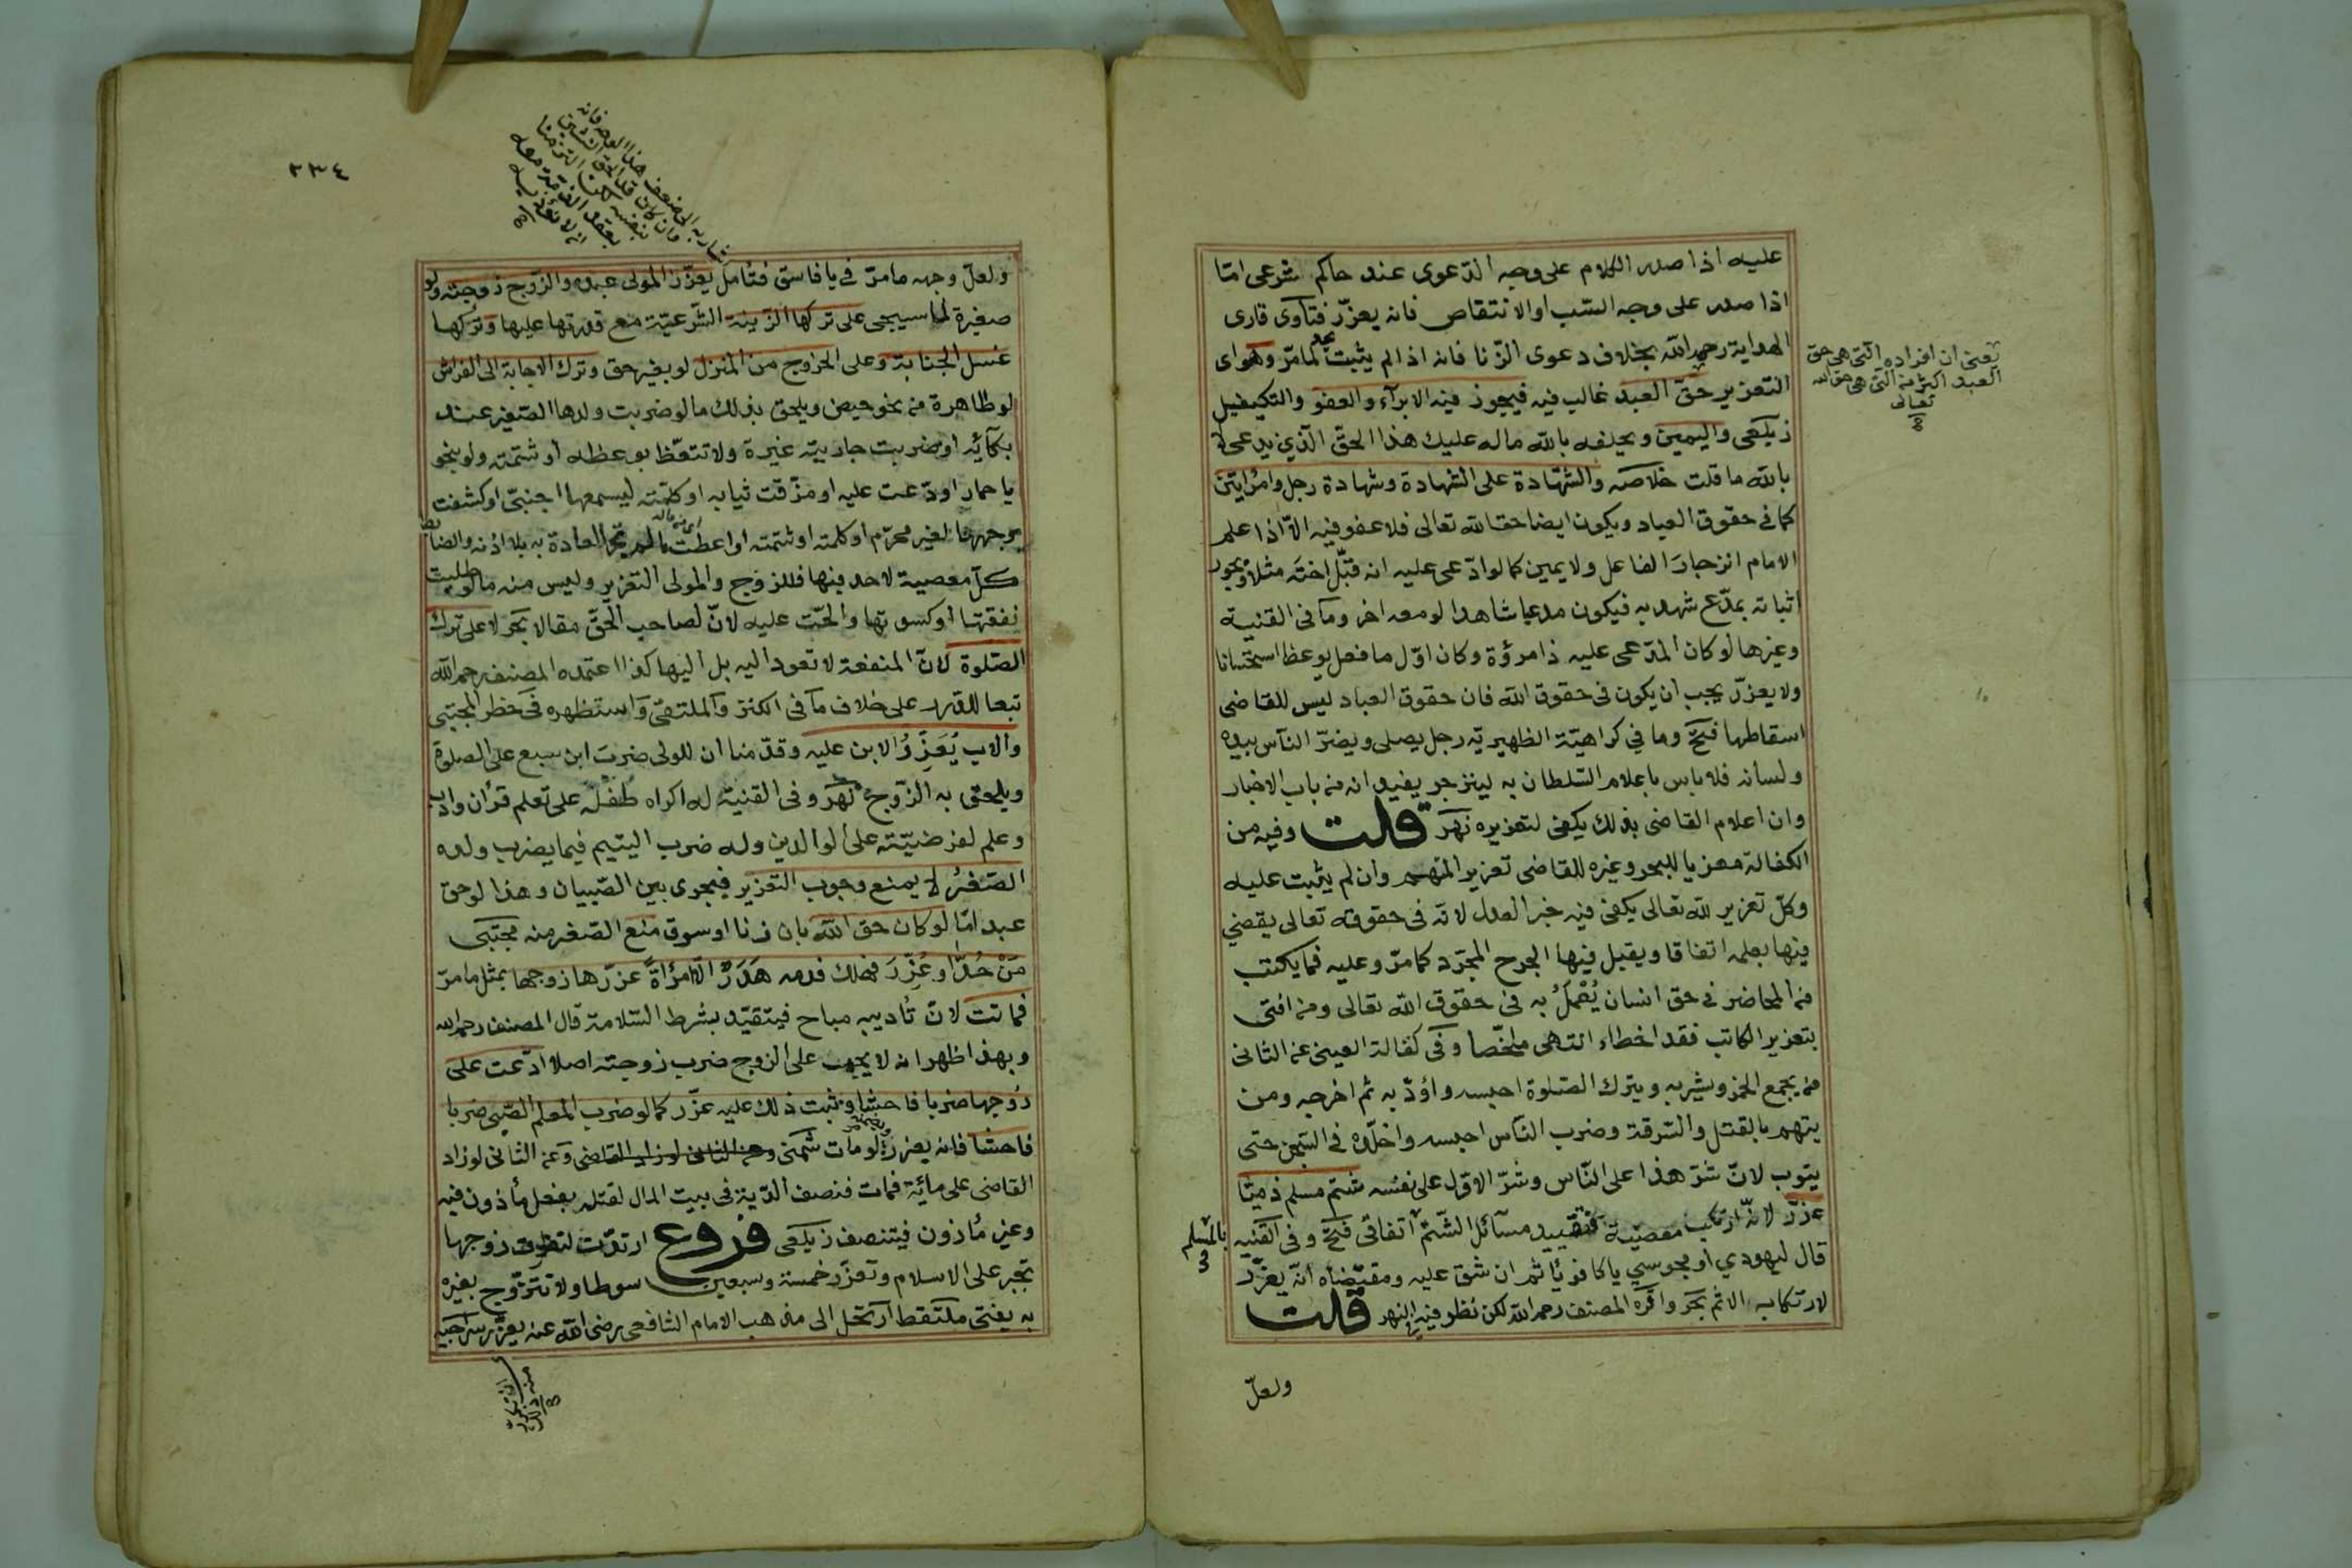 عليه اذا صدر الكلام على وجه الدّعوى عند حاكم شرعى امّا
اذا صدر على وجه السّب او الانتقاص فانه يعزّر فتاوى قارى
الهداية رحمه الله بخلاف دعوى الزّنا فانه اذا لم يثبت يحدّ لما مرّ وهو اى
التعزير حقّ العبد غالب فيه فيجوز فيه الابرآء والعفو والتكيفيل
زيلعى واليمين ويحلفه بالله ماله عليك هذا الحقّ الّذى يدعى لا
بالله ما قلت خلاصه والشّهادة على الشهادة وشهادة رجل وامرأتين
كما فى حقوق العباد ويكون ايضا حقا لله تعالى فلا عفو فيه الاّ اذا علم
الامام انزجار الفاعل ولا يمين كما لو ادّعى عليه انه قبّل اخته مثلا ويجوز
اثباته بمدّع شهد به فيكون مدعيا شاهدا لو معه اخر وما فى القنية
وغيرها لو كان المدّعى عليه ذا مروّة وكان اوّل ما فعل يوعظ استحسانا
ولا يعزّر يجب ان يكون فى حقوق الله فان حقوق العباد ليس للقاضى
اسقاطها فتح وما فى كراهيّة الظهيريّه رجل يصلى ويضرّ النّاس بيده
ولسانه فلا باس باعلام السّلطان به لينزجر يفيد انه من باب الاخبار
وان اعلام القاضى بذلك يكفى لتعزيره نهر قلت وفيه من
الكفالة معزيا للبحر وغيره للقاضى تعزير المتهم وان لم يثبت عليه
وكلّ تعزير لله تعالى يكفى فيه خبر العدل لانّه فى حقوقه تعالى يقضي
فيها بعلمه اتفاقا ويقبل فيها الجرح المجرّد كما مرّ وعليه فما يكتب
من المحاضر فى حق انسان يُعْملُ به فى حقوق الله تعالى ومن افتى
بتعزير الكاتب فقد اخطاء انتهى ملخّصا وفى كفالة العينى عن الثانى
من يجمع الخمر ويشربه ويترك الصّلوة احبسه واؤدّبه ثم اخرجه ومن
يتهم بالقتل والسّرقة وضرب النّاس احبسه واخلّده فى السّجن حتى
يتوب لانّ شرّ هذا على النّاس وشرّ الاوّل على نفسه شتم مسلم ذميّا
عزّر لانّه ارتكب معصيّة فتقييد مسآئل الشّتم اتفاقى فتح وفى القنيه
بالمسلم
قال ليهودي او مجوسي يا كافر ياثم ان شق عليه ومقتضاه انّه يعزّر
لارتكابه الاثم بحر واقرّه المصنف رحمه الله لكن نظر فيه فى النهر قلت
ولعلّ
يعنى ان افراده الّتى هى حق
العبد اكثر من الّتى هى حق لله
تعالى
٣٣٤
ولعلّ وجهه ما مرّ فى يا فاسق فتأمل يعزّر المولى عبده والزّوج زوجته ولو
صغيرة لما سيجى على تركها الزّينة الشّرعيّة مع قدرتها عليها وتركها
غسل الجنابة وعلى الخروج من المنزل لو بغير حق وترك الاجابة الى الفراش
لو طاهرة من نحو حيض ويلحق بذلك ما لو ضربت ولدها الصّغير عند
بكآئه او ضربت جاريته غيرة ولا تتعّظ بوعظه او شتمته ولو بنحو
يا حمار او ادّعت عليه او مزّقت ثيابه او كلّمته ليسمعها اجنبىّ او كشفت
وجهها لغير محرّم او كلمته او شتمته او اعطت ما لم تجر العادة به بلا اذنه والضابط
كلّ معصية لا حد فيها فللزوج والمولى التعزير وليس منه ما لو طلبت
نفقتها او كسوتها والحّت عليه لانّ لصاحب الحقّ مقالا بحر لا على ترك
الصّلوة لانّ المنفعة لا تعود اليه بل اليها كذا اعتمده المصنف رحمه الله
تبعا للدّرر على خلاف ما فى الكنز والملتقى واستظهره فى حظر المجتبى
والاب يُعَزِّرُ الابن عليه وقدّمنا ان للولى ضربَ ابن سبع على الصلوة
ويلحق به الزّوج نهر وفى القنية له اكراه طفله على تعلم قرأن وادب
وعلم لفرضيّته على الوالدين وله ضرب اليتيم فيما يضرب ولده
الصّغرُ لا يمنع وجوب التعزير فيجرى بين الصّبيان وهذا لو حق
عبد امّا لو كان حق الله بان زنا او سرق منع الصّغر منه مجتبى
مَنْ حُدَّ او عُزِّرَ فهلك فدمه هَدَرٌ الاّ امرأةً عزّرها زوجها بمثل ما مرّ
فماتت لانّ تأديبه مباح فيتقيّد بشرط السّلامة قال المصنف رحمه الله
وبهذا ظهر انه لا يجب على الزوج ضرب زوجته اصلا ادّعت على
زوجها ضربا فاحشا وثبت ذلك عليه عزّر كما لو ضرب المعلم الصّبى ضربا
فاحشا فانه يعزر لو مات شمنى وعن الثانى لو زاد القاضى وعن الثانى لو زاد
القاضى على مائة فمات فنصف الدّية فى بيت المال لقتله بفعل مأذون فيه
وغير مأذون فيتنصف زيلعى فروع ارتدّت لتفارق زوجها
تجبر على الاسلام وتعزّر خمسة وسبعين سوطا ولا تتزوّج بغيره
به يفتى ملتقط ارتحل الى مذهب الامام الشافعى رضى الله عنه يعزّر سراجيه